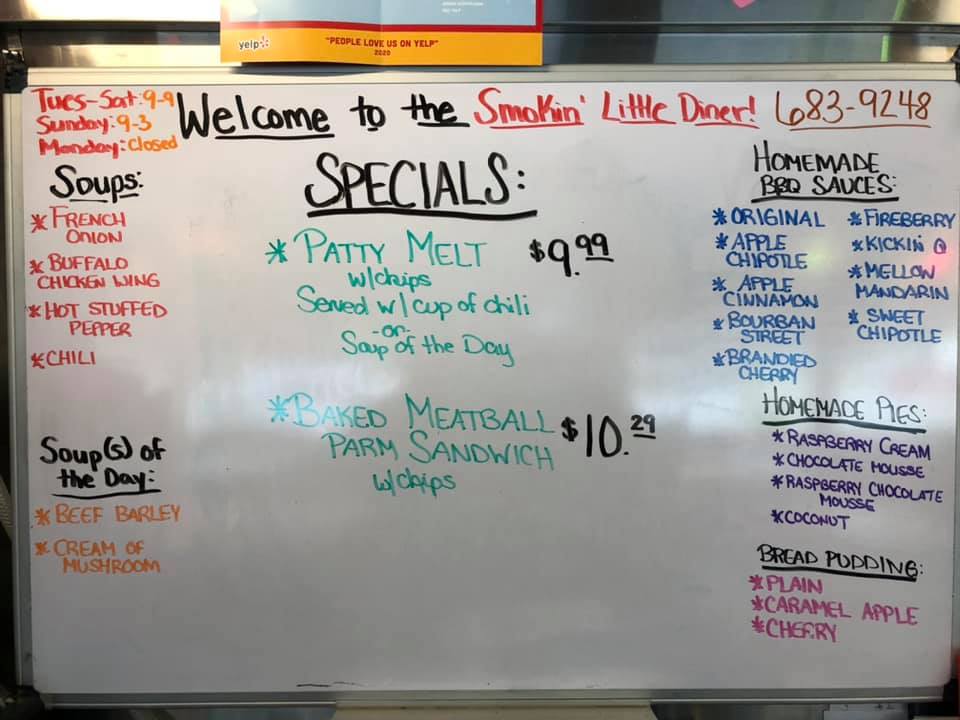 yelp
"PEOPLE LOVE US ON YELP"
2020
Tues-Sat: 9-9
Sunday: 9-3
Monday: Closed
Welcome to the Smokin' Little Diner! 683-9248
Soups:
* FRENCH
ONION
* BUFFALO
CHICKEN WING
* HOT STUFFED
PEPPER
* CHILI
Soup(s) of
the Day:
* BEEF BARLEY
* CREAM OF
MUSHROOM
SPECIALS:
* PATTY MELT $9.99
w/chips
Served w/ cup of chili
-or-
Soup of the Day
* BAKED MEATBALL $10.29
PARM SANDWICH
w/chips
HOMEMADE
BBQ SAUCES:
* ORIGINAL
* APPLE
CHIPOTLE
* APPLE
CINNAMON
* BOURBAN
STREET
* BRANDIED
CHERRY
* FIREBERRY
* KICKIN Q
* MELLOW
MANDARIN
* SWEET
CHIPOTLE
HOMEMADE PIES:
* RASPBERRY CREAM
* CHOCOLATE MOUSSE
* RASPBERRY CHOCOLATE
MOUSSE
* COCONUT
BREAD PUDDING:
* PLAIN
* CARAMEL APPLE
* CHERRY